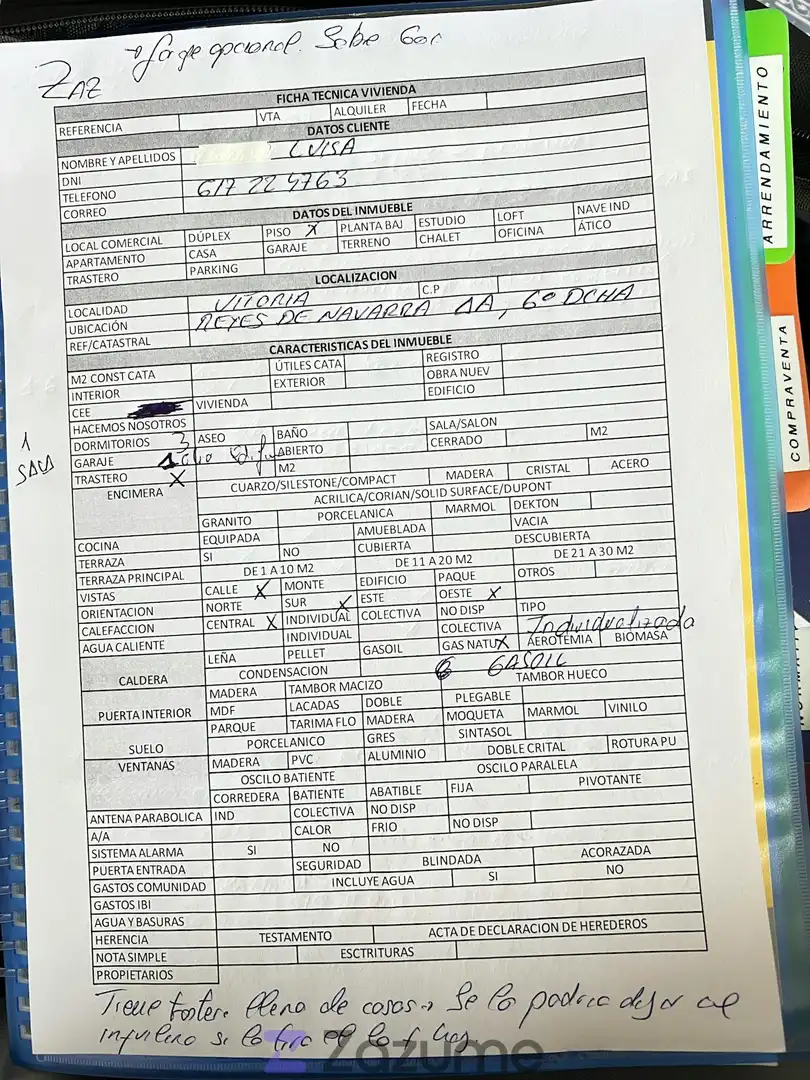 garaje opcional. Sobre 60€
ZAZ
FICHA TECNICA VIVIENDA
REFERENCIA VTA ALQUILER FECHA
DATOS CLIENTE
NOMBRE Y APELLIDOS LUISA
DNI
TELEFONO 617 22 5763
CORREO
DATOS DEL INMUEBLE
LOCAL COMERCIAL DÚPLEX PISO X PLANTA BAJ ESTUDIO LOFT NAVE IND
APARTAMENTO CASA GARAJE TERRENO CHALET OFICINA ÁTICO
TRASTERO PARKING
LOCALIZACION
LOCALIDAD VITORIA C.P
UBICACIÓN REYES DE NAVARRA 1A, 6º DCHA
REF/CATASTRAL
CARACTERISTICAS DEL INMUEBLE
M2 CONST CATA ÚTILES CATA REGISTRO
INTERIOR EXTERIOR OBRA NUEV
CEE VIVIENDA EDIFICIO
HACEMOS NOSOTROS
DORMITORIOS 3 ASEO BAÑO SALA/SALON
GARAJE ABIERTO CERRADO M2
1
SALA
TRASTERO X M2
ENCIMERA CUARZO/SILESTONE/COMPACT MADERA CRISTAL ACERO
ACRILICA/CORIAN/SOLID SURFACE/DUPONT
GRANITO PORCELANICA MARMOL DEKTON
COCINA EQUIPADA AMUEBLADA VACIA
TERRAZA SI NO CUBIERTA DESCUBIERTA
TERRAZA PRINCIPAL DE 1 A 10 M2 DE 11 A 20 M2 DE 21 A 30 M2
VISTAS CALLE X MONTE EDIFICIO PAQUE OTROS
ORIENTACION NORTE SUR X ESTE OESTE X
CALEFACCION CENTRAL X INDIVIDUAL COLECTIVA NO DISP TIPO
AGUA CALIENTE INDIVIDUAL COLECTIVA Individualizada
CALDERA LEÑA PELLET GASOIL GAS NATU X AEROTEMIA BIOMASA
CONDENSACION GASOIL
PUERTA INTERIOR MADERA TAMBOR MACIZO TAMBOR HUECO
MDF LACADAS DOBLE PLEGABLE
SUELO PARQUE TARIMA FLO MADERA MOQUETA MARMOL VINILO
PORCELANICO GRES SINTASOL
VENTANAS MADERA PVC ALUMINIO DOBLE CRITAL ROTURA PU
OSCILO BATIENTE OSCILO PARALELA
CORREDERA BATIENTE ABATIBLE FIJA PIVOTANTE
ANTENA PARABOLICA IND COLECTIVA NO DISP
A/A CALOR FRIO NO DISP
SISTEMA ALARMA SI NO
PUERTA ENTRADA SEGURIDAD BLINDADA ACORAZADA
GASTOS COMUNIDAD INCLUYE AGUA SI NO
GASTOS IBI
AGUA Y BASURAS
HERENCIA TESTAMENTO ACTA DE DECLARACION DE HEREDEROS
NOTA SIMPLE ESCRITURAS
PROPIETARIOS
Tiene lleno de cosas Se lo podria dejar al
inquilino si
Zazume
ARRENDAMIENTO
COMPRAVENTA